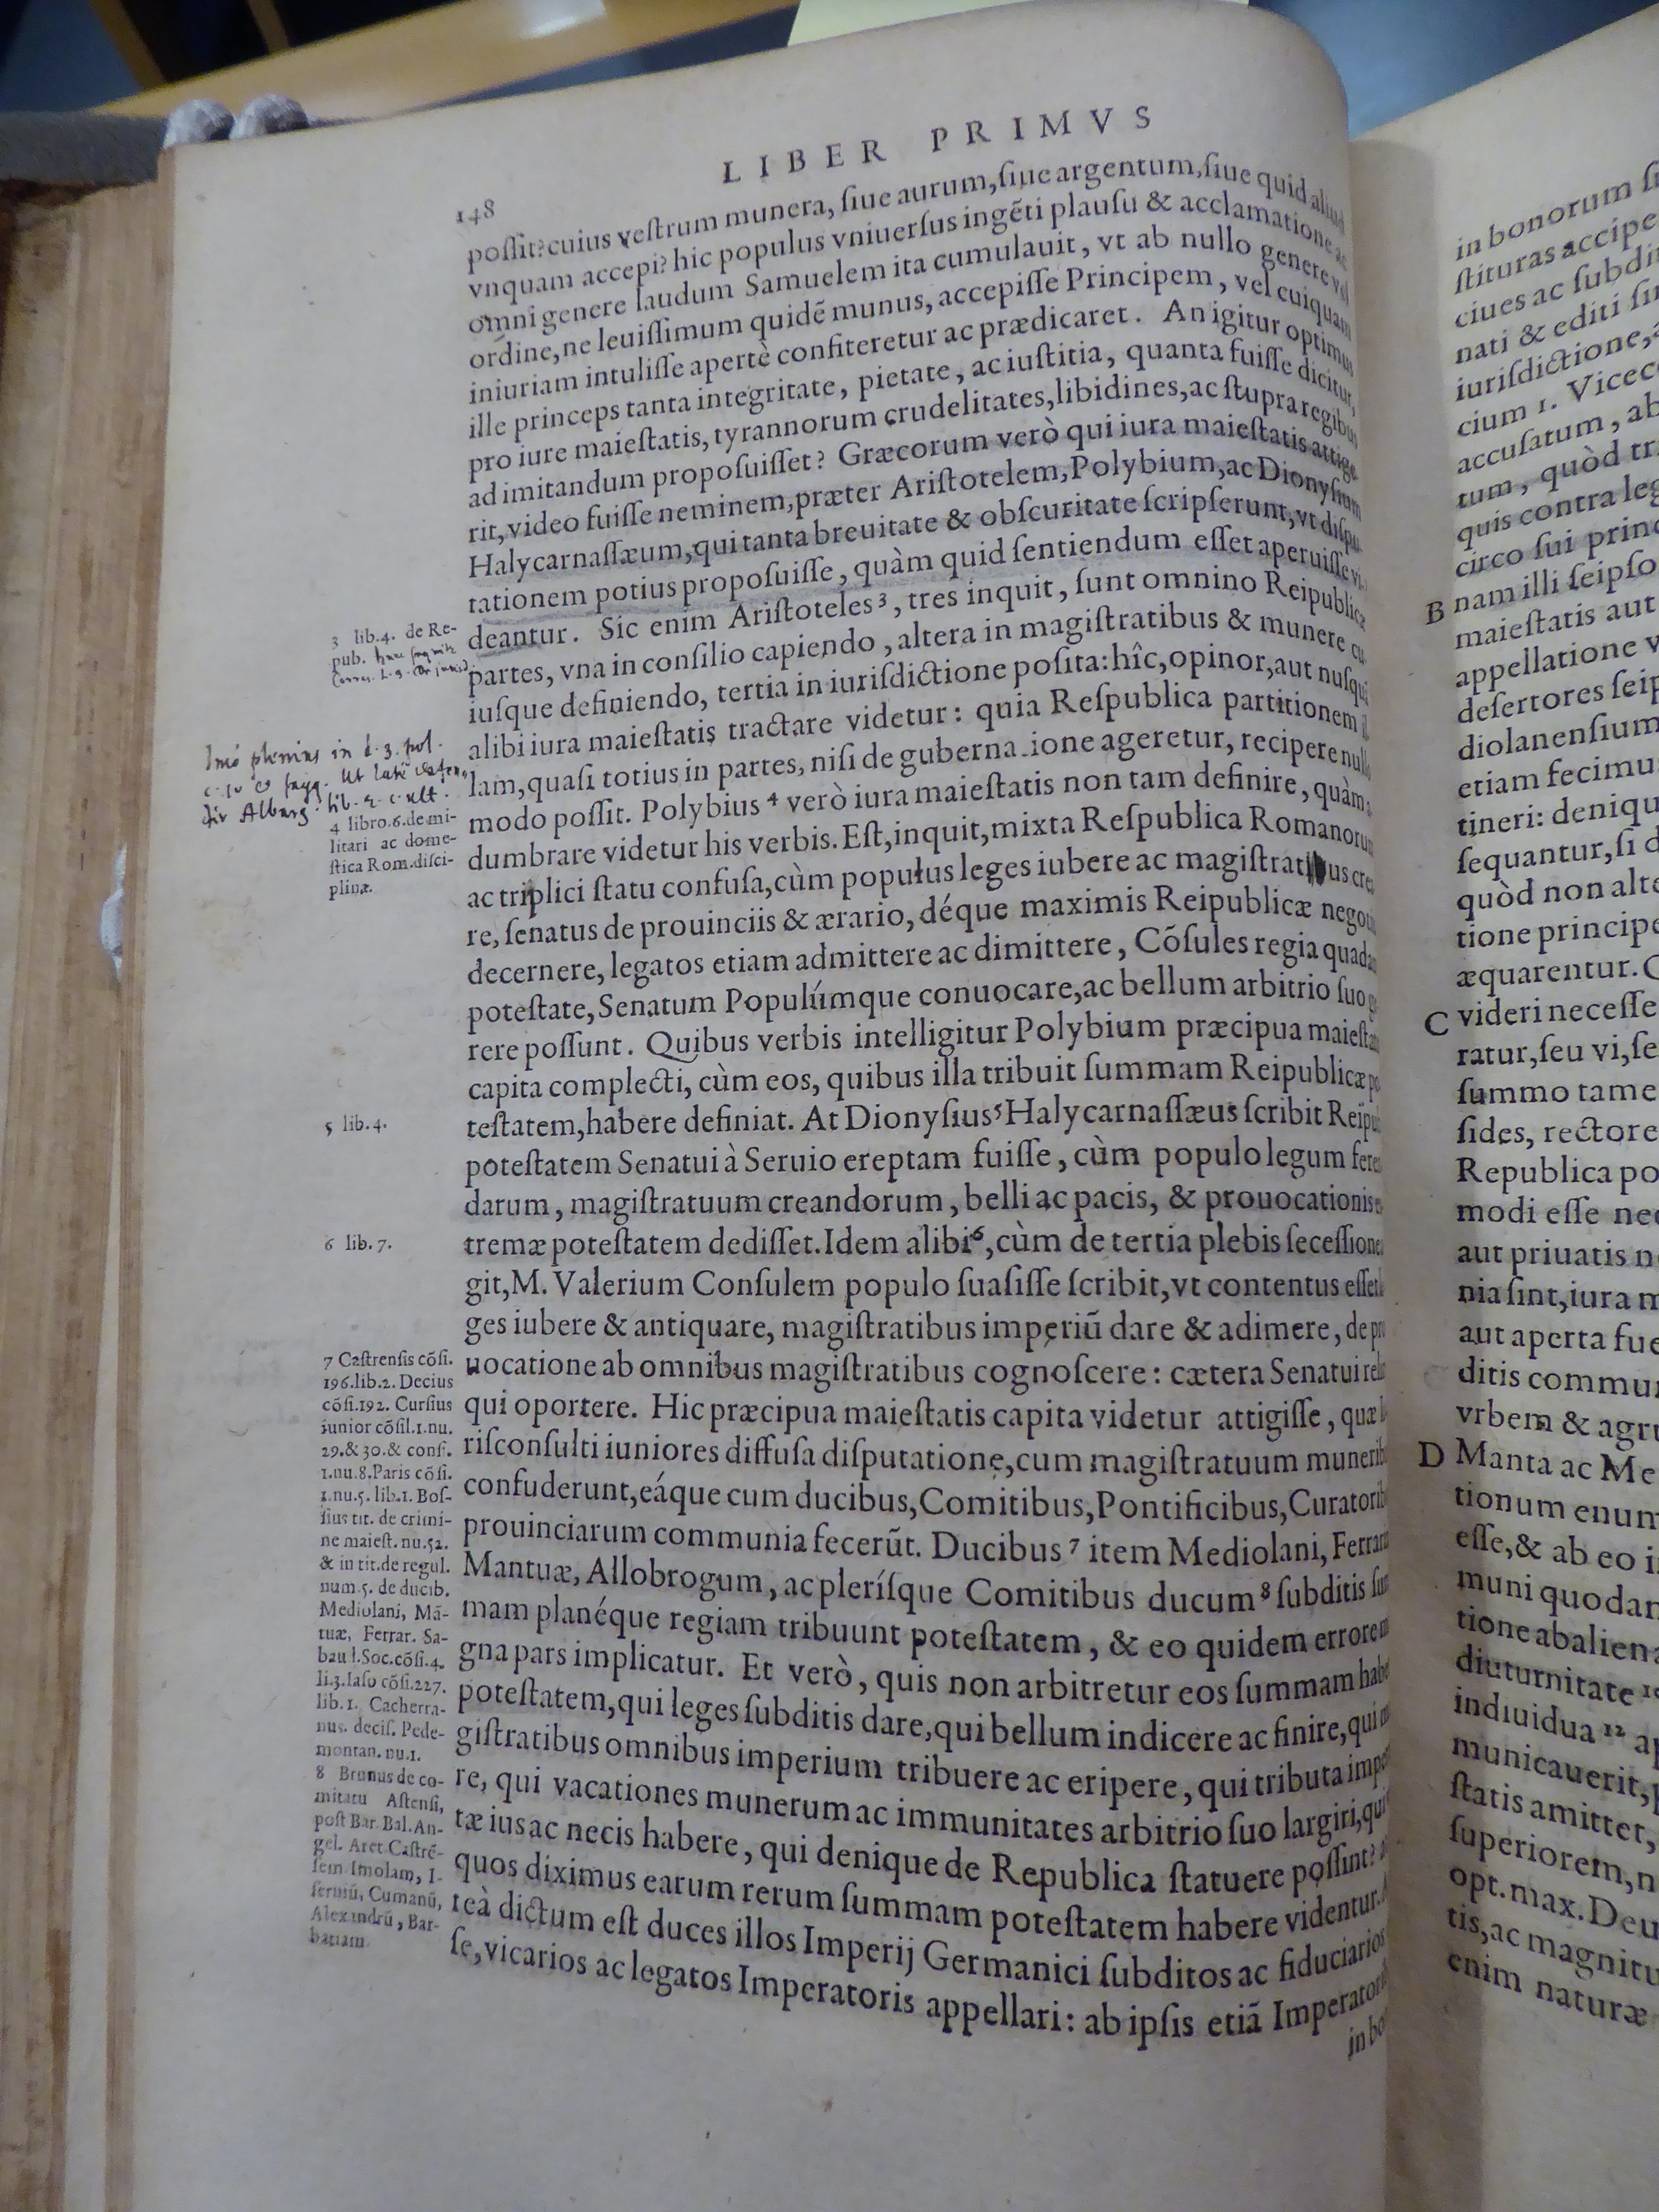 LIBER PRIMVS
148
poſſit? cuius veſtrum munera, ſiue aurum, ſiue argentum, ſiue quid aliud
vnquam accepi? hic populus vniuerſus ingẽti plauſu & acclamatione ac
omni genere laudum Samuelem ita cumulauit, vt ab nullo genere vel
ordine, ne leuiſſimum quidẽ munus, accepiſſe Principem, vel cuiquam
iniuriam intuliſſe apertè confiteretur ac prædicaret. An igitur optimus
ille princeps tanta integritate, pietate, ac iuſtitia, quanta fuiſſe dicitur,
pro iure maieſtatis, tyrannorum crudelitates, libidines, ac ſtupra regibus
ad imitandum propoſuiſſet? Græcorum verò qui iura maieſtatis attige
rit, video fuiſſe neminem, præter Ariſtotelem, Polybium, ac Dionyſium
Halycarnaſſæum, qui tanta breuitate & obſcuritate ſcripſerunt, vt diſpu
tationem potius propoſuiſſe, quàm quid ſentiendum eſſet aperuiſſe vi
deantur. Sic enim Ariſtoteles 3, tres inquit, ſunt omnino Reipublicæ
partes, vna in conſilio capiendo, altera in magiſtratibus & munere cu
iuſque definiendo, tertia in iuriſdictione poſita: hîc, opinor, aut nuſquã
alibi iura maieſtatis tractare videtur: quia Reſpublica partitionem
lam, quaſi totius in partes, niſi de guberna ione ageretur, recipere nullo
modo poſſit. Polybius 4 verò iura maieſtatis non tam definire, quàm
dumbrare videtur his verbis. Eſt, inquit, mixta Reſpublica Romanorum
ac triplici ſtatu confuſa, cùm populus leges iubere ac magiſtratibus crea
re, ſenatus de prouinciis & ærario, déque maximis Reipublicæ negotiis
decernere, legatos etiam admittere ac dimittere, Cõſules regia quadam
poteſtate, Senatum Populúmque conuocare, ac bellum arbitrio ſuo ge
rere poſſunt. Quibus verbis intelligitur Polybium præcipua maieſtatis
capita complecti, cùm eos, quibus illa tribuit ſummam Reipublicæ po
teſtatem, habere definiat. At Dionyſius 5 Halycarnaſſæus ſcribit Reipu
poteſtatem Senatui à Seruio ereptam fuiſſe, cùm populo legum feren
darum, magiſtratuum creandorum, belli ac pacis, & prouocationis ex
tremæ poteſtatem dediſſet. Idem alibi 6, cùm de tertia plebis ſeceſſione
git, M. Valerium Conſulem populo ſuaſiſſe ſcribit, vt contentus eſſet le
ges iubere & antiquare, magiſtratibus imperiũ dare & adimere, de pro
uocatione ab omnibus magiſtratibus cognoſcere: cætera Senatui relin
qui oportere. Hic præcipua maieſtatis capita videtur attigiſſe, quæ
riſconſulti iuniores diffuſa diſputatione, cum magiſtratuum muneribus
confuderunt, eáque cum ducibus, Comitibus, Pontificibus, Curatoribus
prouinciarum communia fecerũt. Ducibus 7 item Mediolani, Ferrariæ
Mantuæ, Allobrogum, ac pleríſque Comitibus ducum 8 ſubditis ſum
mam planéque regiam tribuunt poteſtatem, & eo quidem errore m
gna pars implicatur. Et verò, quis non arbitretur eos ſummam habere
poteſtatem, qui leges ſubditis dare, qui bellum indicere ac finire, qui ma
giſtratibus omnibus imperium tribuere ac eripere, qui tributa impe
re, qui vacationes munerum ac immunitates arbitrio ſuo largiri, qui
tæ ius ac necis habere, qui denique de Republica ſtatuere poſſint?
quos diximus earum rerum ſummam poteſtatem habere videntur.
teà dictum eſt duces illos Imperij Germanici ſubditos ac fiduciarios
ſe, vicarios ac legatos Imperatoris appellari: ab ipſis etiã Imperatoribus
in bo
3 lib.4. de Re-
pub.
Imò plenius in l. 3. pol.
4 libro.6.de mi-
litari ac dome-
ſtica Rom.diſci-
plina.
5 lib.4.
6 lib.7.
7 Caſtrenſis cõſi.
196.lib.2. Decius
cõſi.192. Curſius
iunior cõſil.1.nu.
29.& 30.& conſ.
1.nu.8.Paris cõſi.
1.nu.5. lib.1. Boſ-
ſius tit. de crimi-
ne maieſt. nu.52.
& in tit.de regul.
num.5. de ducib.
Mediolani, Mã-
tuæ, Ferrar. Sa-
baud.Soc.cõſi.4.
li.3.Iaſo cõſi.227.
lib.1. Cacherra-
nus. deciſ. Pede-
montan. nu.1.
8 Brunus de co-
mitatu Aſtenſi,
poſt Bar. Bal. An-
gel. Aret. Caſtrẽ-
ſem Imolam, I-
ſerniũ, Cumanũ,
Alexandrũ, Bar-
batiam
in bonorum
ſtituras accipe
ciues ac ſubdi
nati & editi
iuriſdictione,
cium 1. Vicec
accuſatum, ab
tum, quòd tr
quis contra leg
circo ſui princ
B nam illi ſeipſo
maieſtatis aut
appellatione v
deſertores ſeip
diolanenſium
etiam fecimu
tineri: deniqu
ſequantur, ſi d
quòd non alte
tione principe
æquarentur.
C videri neceſſe
ratur, ſeu vi, ſe
ſummo tame
ſides, rectore
Republica po
modi eſſe nec
aut priuatis n
nia ſint, iura m
aut aperta fue
ditis commu
vrbem & agr
D Manta ac Me
tionum enum
eſſe, & ab eo i
muni quodam
tione abaliena
diuturnitate
indiuidua 12 a
municauerit,
ſtatis amittet,
ſuperiorem, n
opt. max. Deu
tis, ac magnitu
enim naturæ